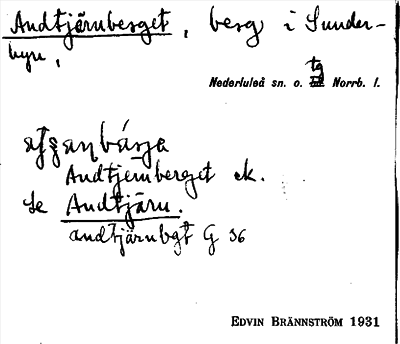 Andtjärnberget, berg i Sunder-
byn,
Nederluleå sn. o. tg Norrb. l.
Andtjernberget ek.
Se Andtjärn.
andtjärnbgt G 36
EDVIN BRÄNNSTRÖM 1931